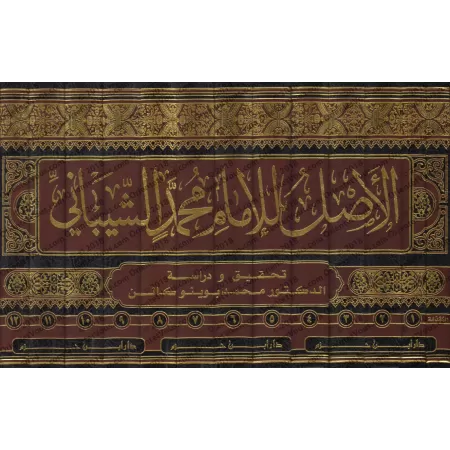 الأصل للإمام محمد الشيباني
تحقيق و دراسة
الدكتور محمد بوينوكالن
المقدمة ١ ٢ ٣ ٤ ٥ ٦ ٧ ٨ ٩ ١٠ ١١ ١٢
دار ابن حزم دار ابن حزم دار ابن حزم